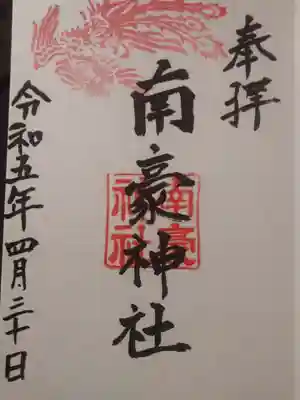 奉拝
南豪神社
南豪神社
令和五年四月三十日